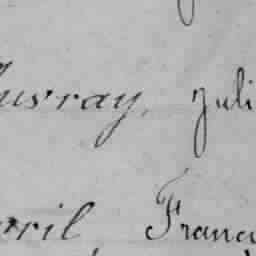 usray, Juli
rril, Franci